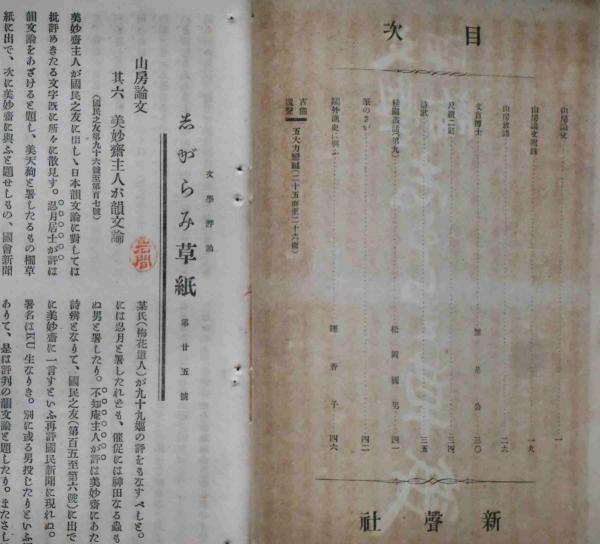 目次
山房論文 一
山房論文附錄 一九
山房放語 二六
文盲博士 無是公 三〇
尺牘二則 三四
詩歌 三五
松岡國男 四一
筆のさが 四二
陳香子 四六
新聲社
文學評論
志がらみ草紙
第廿五號
山房論文
其六 美妙齋主人が韻文論
(國民之友第九十六號至第百七號)
美妙齋主人が國民之友に出しゝ日本韻文論に對しては
批評めきたる文字既に所々に散見す。忍月居士が評は
韻文論をあざけると題し、美天狗と署したるもの柵草
紙に出で、次に美妙齋に與ふと題せしもの、國會新聞
某氏(梅花道人)が九十九嫗の評をもなすべしと。
には忍月と署したれども、催促には神田なる蟲も
ぬ男と署したり。不知庵主人が評は美妙齋にあた
詩辨となりて、國民之友(第百五至第六號)に出で
に美妙齋に一言すといふ再評國民新聞に現れぬ。
署名はKU生なりき。別に或る男投じたりといふ
ありて、是は評判の韻文論と題したり。またさし